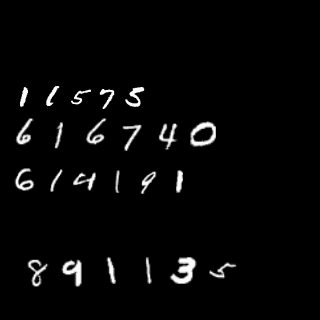 11575
616740
614191
891135